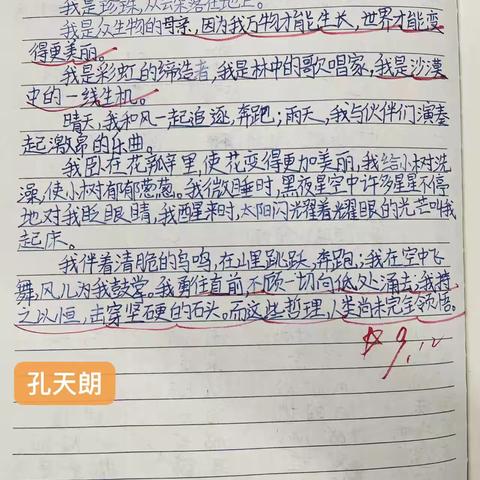 我是珍珠,从云朵落在地上。
我是众生物的母亲,因为我万物才能生长,世界才能变
得更美丽。
我是彩虹的缔造者,我是林中的歌唱家,我是沙漠
中的一线生机。
晴天,我和风一起追逐,奔跑;雨天,我与伙伴们演奏
起激昂的乐曲。
我卧在花瓣里,使花变得更加美丽,我给小树洗
澡,使小树郁郁葱葱。我微睡时,黑夜星空中许多星星不停
地对我眨眼睛,我醒来时,太阳闪光耀着光耀眼的光芒叫我
起床。
我伴着清脆的鸟鸣,在山里跳跃,奔跑;我在空中飞
舞,风儿为我鼓掌。我勇往直前,不顾一切向低处涌去;我持
之以恒,击穿坚硬的石头。而这些哲理,人类尚未完全领悟。
孔天朗